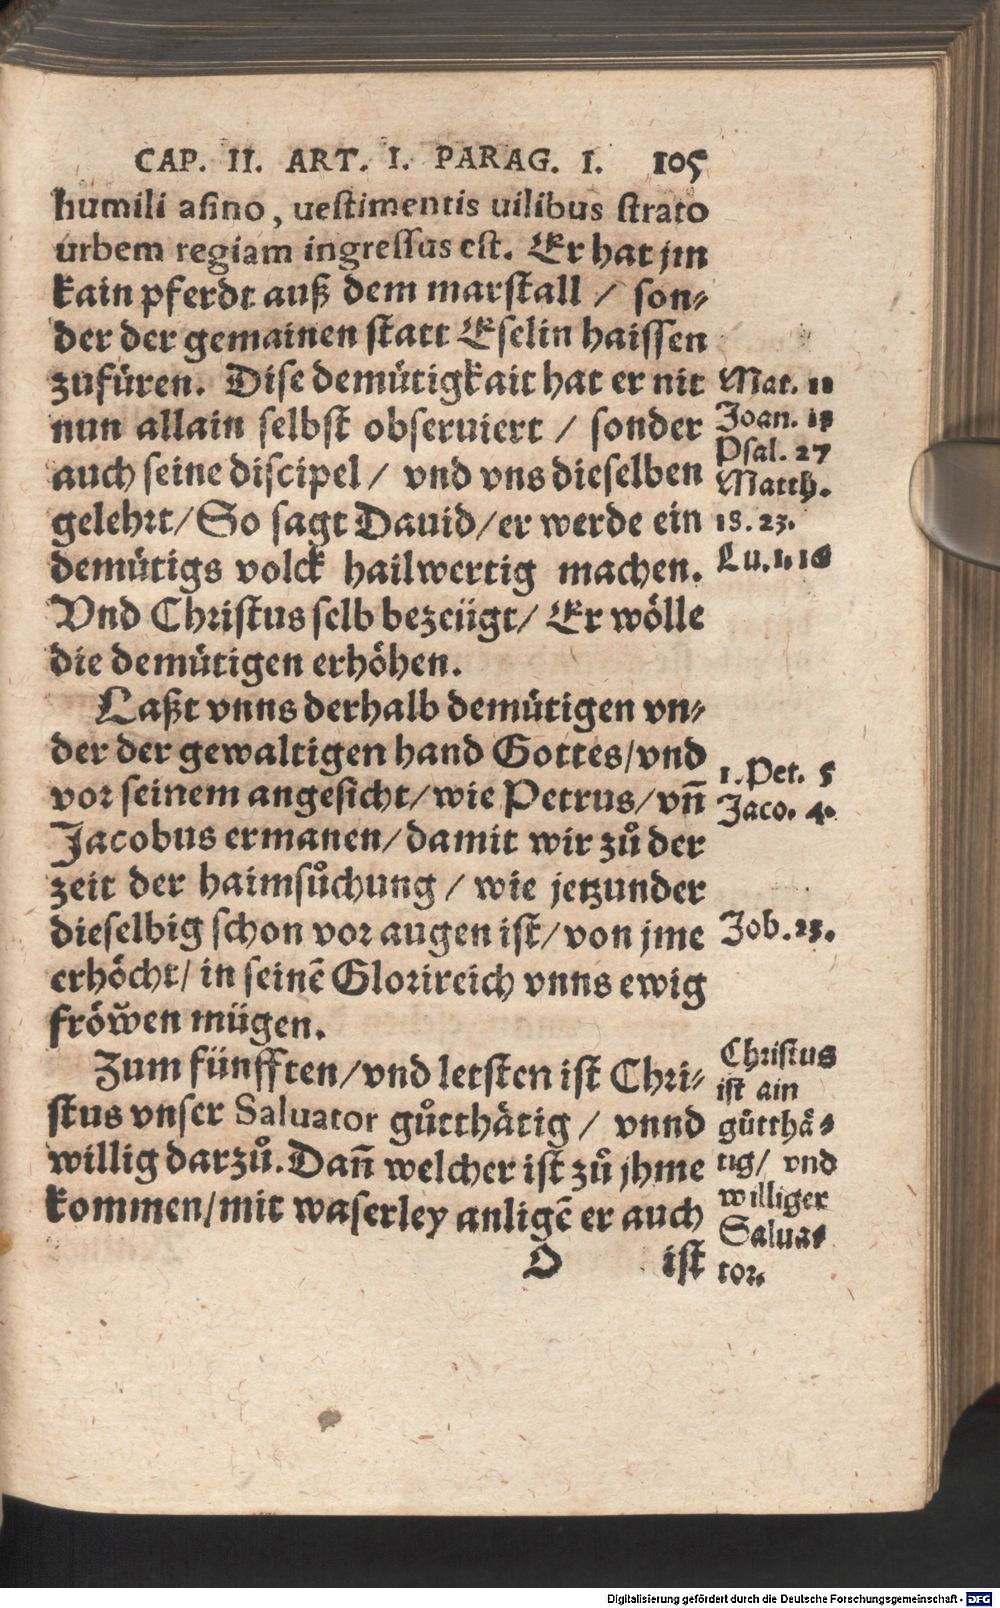 CAP. II. ART. I. PARAG. I. 105
humili asino, uestimentis uilibus strato
urbem regiam ingressus est. Er hat jm
kain pferdt auß dem marstall / son-
der der gemainen statt Eselin haissen
zufüren. Dise demütigkait hat er nit
nun allain selbst obseruiert / sonder
auch seine discipel / vnd vns dieselben
gelehrt/ So sagt Dauid/ er werde ein
demütigs volck hailwertig machen.
Vnd Christus selb bezeügt/ Er wölle
die demütigen erhöhen.
Laßt vnns derhalb demütigen vn-
der der gewaltigen hand Gottes/ vnd
vor seinem angesicht/ wie Petrus/ vñ
Jacobus ermanen/ damit wir zů der
zeit der haimsůchung / wie jetzunder
dieselbig schon vor augen ist/ von jme
erhöcht/ in seinẽ Glorireich vnns ewig
fröwen mügen.
Zum fünfften/ vnd letsten ist Chri-
stus vnser Saluator gůtthätig / vnnd
willig darzů. Dañ welcher ist zů jhme
kommen/ mit waserley anligẽ er auch
O ist
Mat. 11
Joan. 13
Psal. 27
Matth.
18. 23.
Lu. 1. 18
1. Pet. 5
Jaco. 4.
Job.
Christus
ist ain
gůtthä-
tig/ vnd
williger
Salua-
tor.
Digitalisierung gefördert durch die Deutsche Forschungsgemeinschaft - DFG